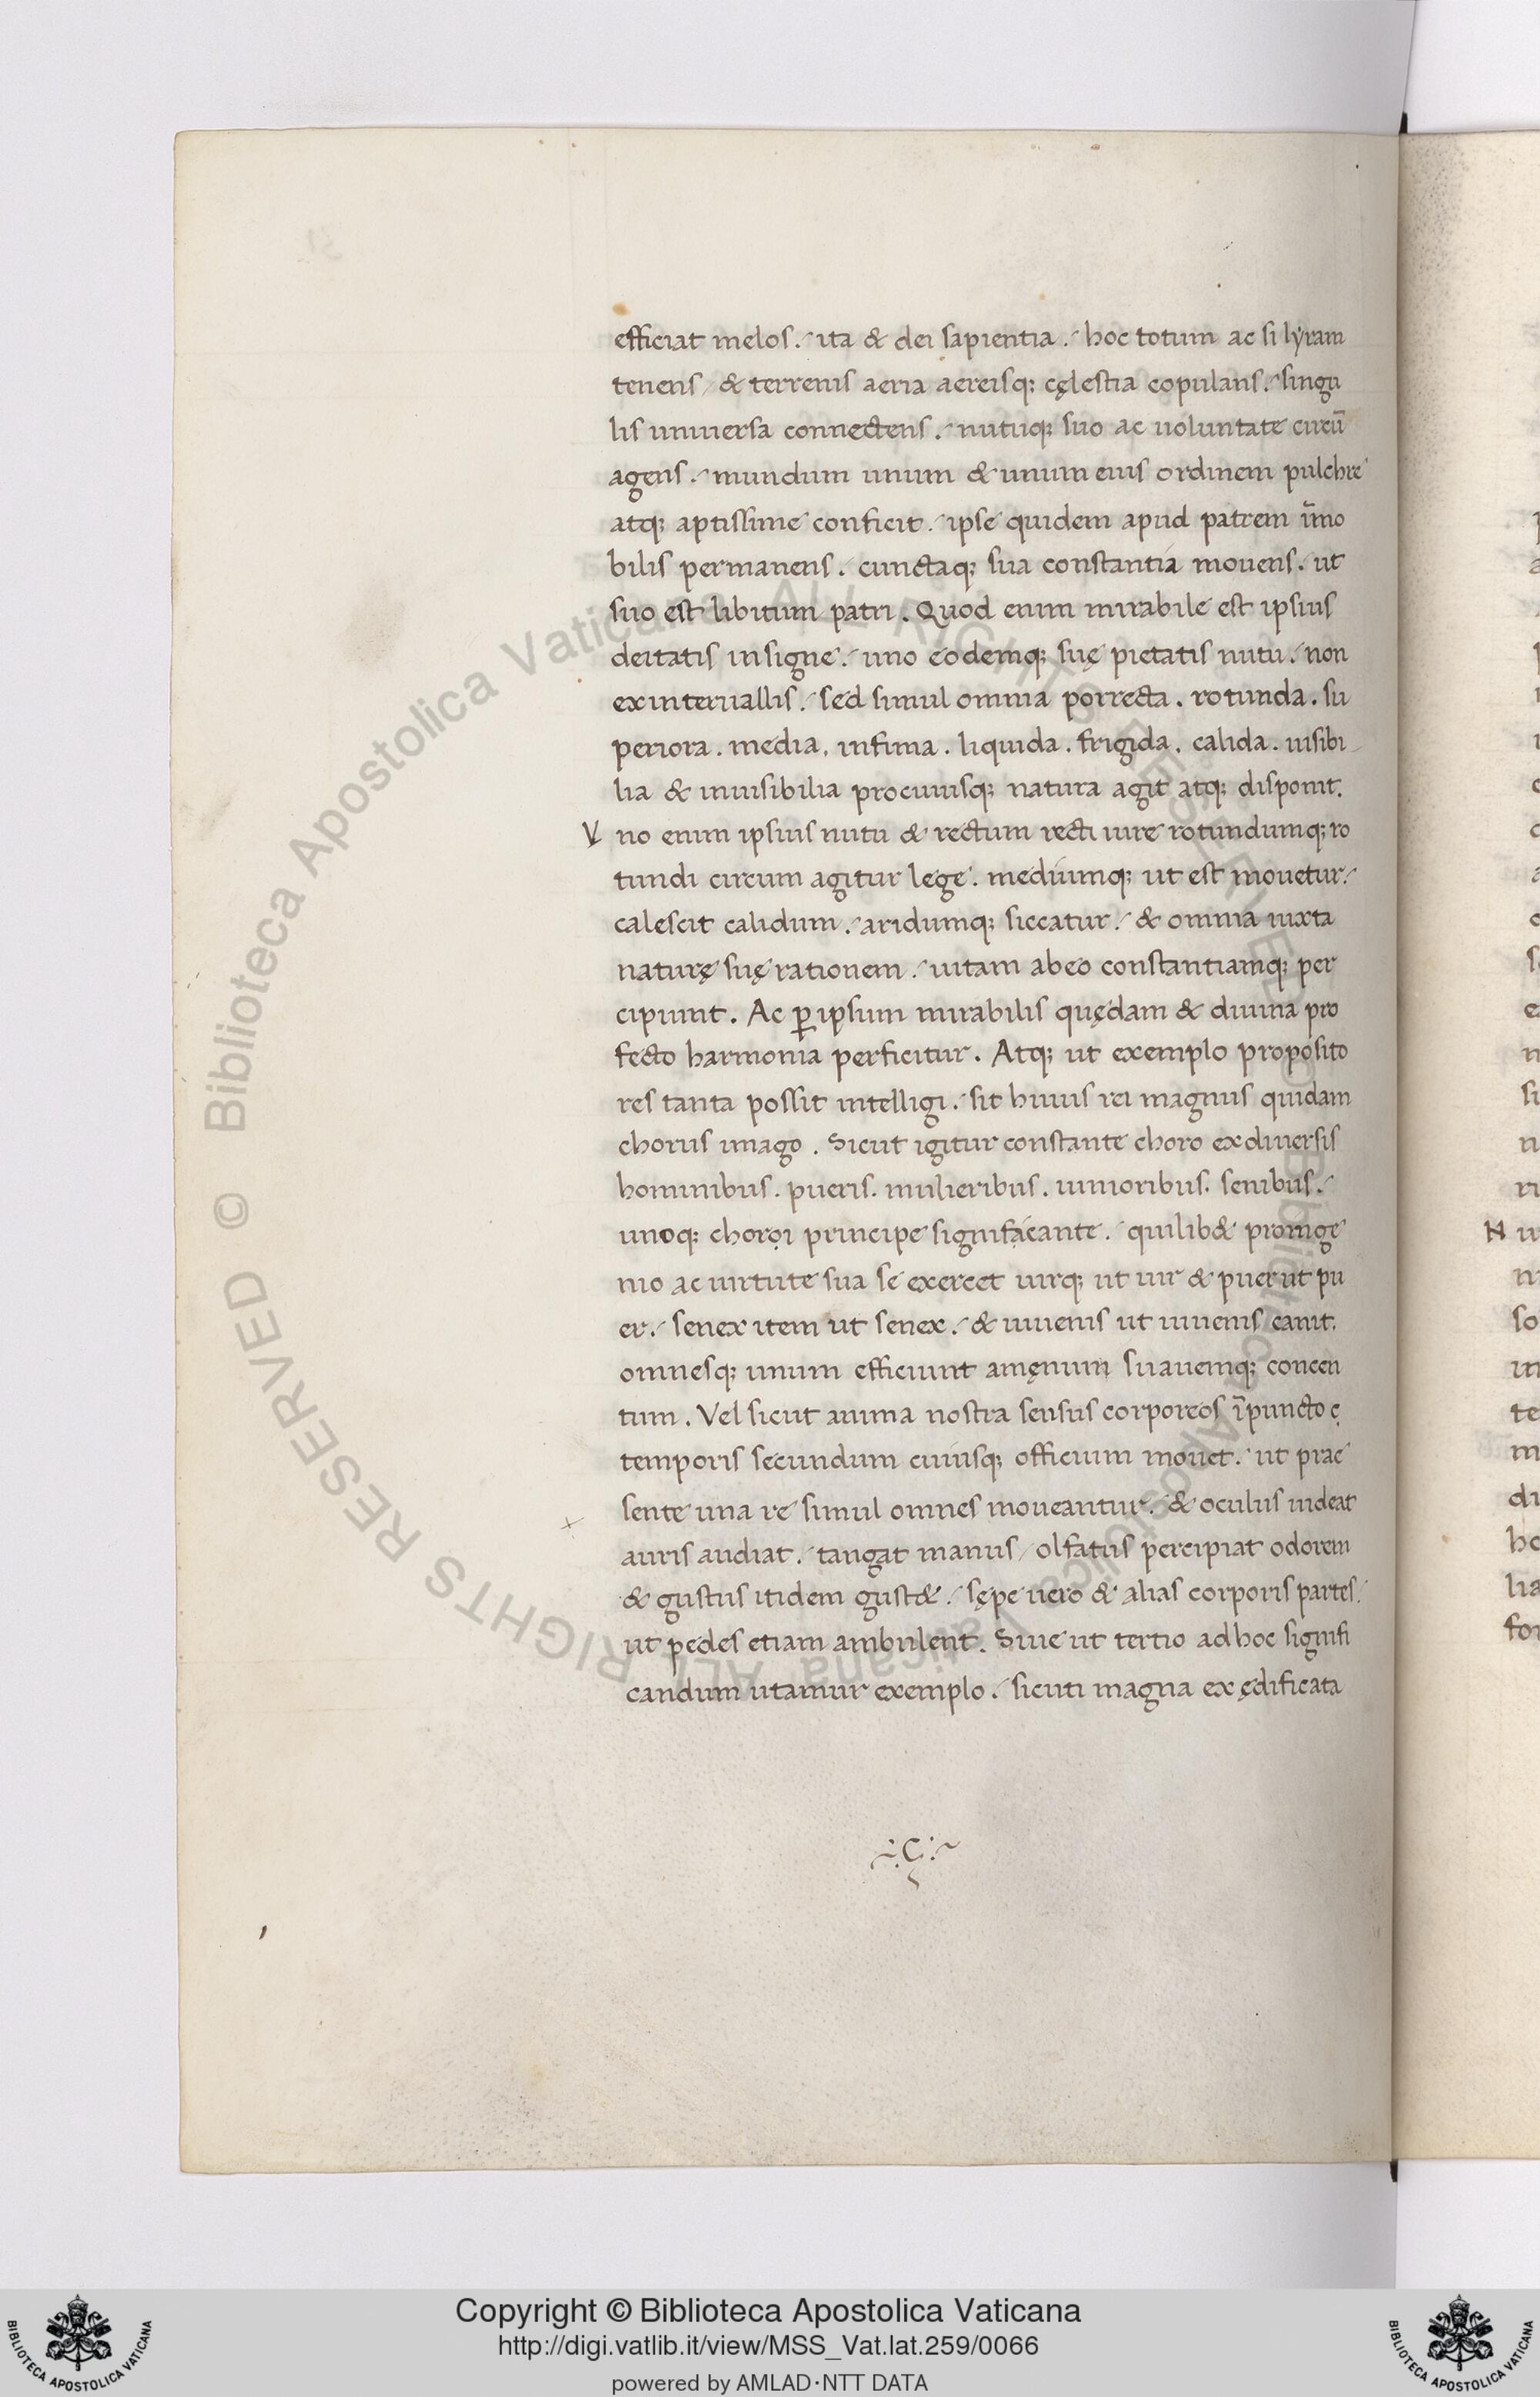 efficiat melos. ita & dei sapientia. hoc totum ac si lyram
tenens, & terrenis aeria aereisq; cęlestia copulans. singu
lis universa connectens. nutuq; suo ac uoluntate circū
agens. mundum unum & unum eius ordinem pulchre
atq; aptissime conficit. ipse quidem apud patrem īmo
bilis permanens. cunctaq; sua constantia mouens. ut
suo est libitum patri. Quod enim mirabile est ipsius
deitatis insigne. uno eodemq; suę pietatis nutu. non
ex interuallis. sed simul omnia porrecta. rotunda. su
periora. media. infima. liquida. frigida. calida. uisibi
lia & inuisibilia pro cuiusq; natura agit atq; disponit.
V no enim ipsius nutu & rectum recti iure rotundumq; ro
tundi circum agitur lege. mediumq; ut est mouetur.
calescit calidum. aridumq; siccatur. & omnia iuxta
naturę suę rationem. uitam ab eo constantiamq; per
cipiunt. Ac ꝑ ipsum mirabilis quędam & diuina pro
fecto harmonia perficitur. Atq; ut exemplo proposito
res tanta possit intelligi. sit huius rei magnus quidam
chorus imago. Sicut igitur constante choro ex diuersis
hominibus. pueris. mulieribus. iunioribus. senibus.
unoq; principe significante. quilib& pro inge
nio ac uirtute sua se exercet uirq; ut uir & puer ut pu
er. senex item ut senex. & iuuenis ut iuuenis canit.
omnesq; unum efficiunt amęnum suauemq; concen
tum. Vel sicut anima nostra sensus corporeos ī puncto
temporis secundum cuiusq; officium mouet. ut prae
sente una re simul omnes moueantur. & oculus uideat
auris audiat. tangat manus, olfatus percipiat odorem
& gustus itidem gust&. sępe uero & alias corporis partes.
ut pedes etiam ambulent. Siue ut tertio ad hoc signifi
candum utamur exemplo. sicuti magna ex ędificata
C
Biblioteca Apostolica Vaticana ALL RIGHTS RESERVED ©
Copyright © Biblioteca Apostolica Vaticana
http://digi.vatlib.it/view/MSS_Vat.lat.259/0066
powered by AMLAD·NTT DATA
BIBLIOTECA APOSTOLICA VATICANA
BIBLIOTECA APOSTOLICA VATICANA